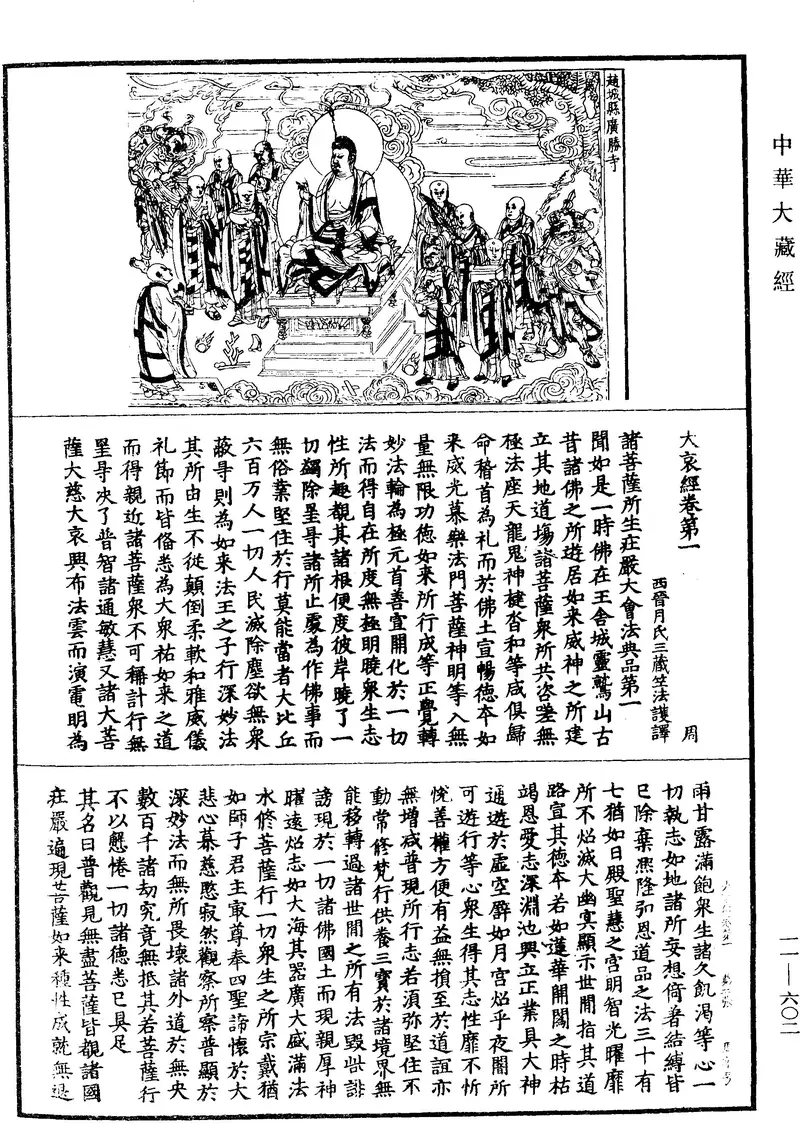 中華大藏經
趙城縣廣勝寺
大哀經卷第一
周
西晉月氏三藏竺法護譯
諸菩薩所生莊嚴大會法典品第一
聞如是一時佛在王舍城靈鷲山古
昔諸佛之所遊居如來威神之所建
立其地道場諸菩薩眾所共咨嗟無
極法座天龍鬼神揵沓和等咸俱歸
命稽首為礼而於佛土宣暢德本如
來威光慕樂法門菩薩神明等入無
量無限功德如來所行成等正覺轉
妙法輪為極元首善宜開化於一切
法而得自在所度無極明曉眾生志
性所趣觀其諸根便度彼岸曉了一
切蠲除罣㝵諸所止處為作佛事而
無俗業堅住於行莫能當者大比丘
六百万人一切人民滅除塵欲無眾
蔽㝵則為如來法王之子行深妙法
其所由生不從顛倒柔軟和雅威儀
礼節而皆俻悉為大眾祐如來之道
而得親近諸菩薩眾不可稱計行無
罣㝵決了普智諸通敏慧又諸大菩
薩大慈大哀興布法雲而演電明為
雨甘露滿飽眾生諸久飢渴等心一
切執志如地諸所妄想倚著結縛皆
已除棄熈隆弘恩道品之法三十有
七猶如日殿聖慧之宮明智光曜靡
所不炤滅大幽冥顯示世間指其道
路宣其德本若如蓮華開闓之時枯
竭恩愛志深淵池興立正業具大神
通遊於虛空群如月宮炤乎夜闇所
可遊行等心眾生得其志性靡不忻
悅善權方便有益無損至於道誼亦
無增減普現所行志若須弥堅住不
動常修梵行供養三寶於諸境界無
能移轉過諸世間之所有法毀呰誹
謗現於一切諸佛國土而現親厚神
曜遠炤志如大海其器廣大盛滿法
水修菩薩行一切眾生之所宗戴猶
如師子君主㝡尊奉四聖諦懷於大
悲心慕慈愍寂然觀察所察普顯於
深妙法而無所畏壞諸外道於無央
數百千諸劫究竟無抵其若菩薩行
不以懈惓一切諸德悉已具足
其名曰普觀見無盡菩薩皆觀諸國
莊嚴遍現菩薩如來種性成就無退
一一—六〇二